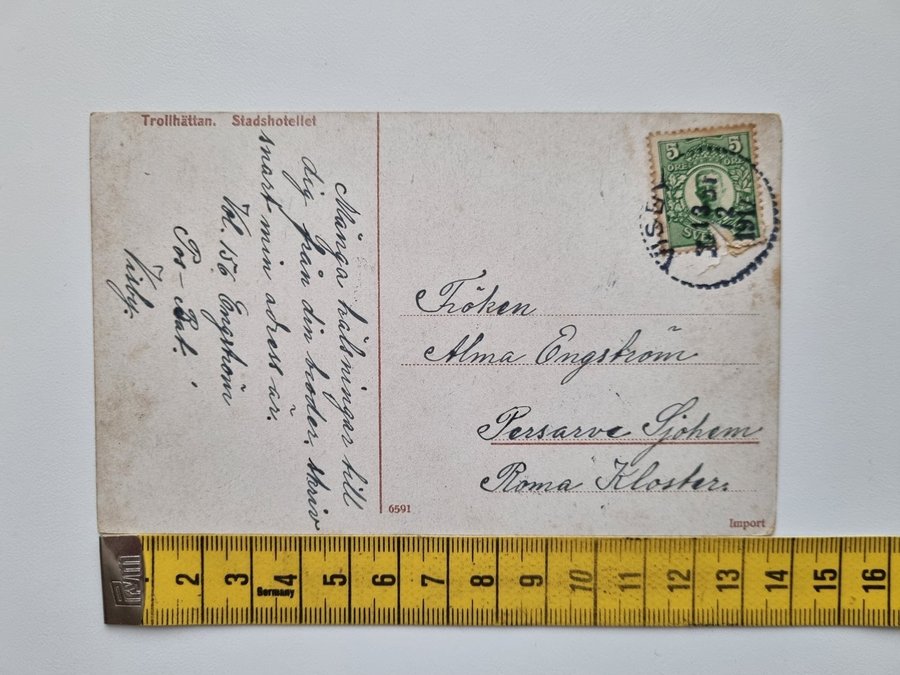 Trollhättan. Stadshotellet
Många hälsningar till
dig från din broder, skriv
snart min adress är.
Vol. 156 Engström
Pos-Bat.
Visby.
5 5
VISBY
Fröken
Alma Engström
Persarve Sjöhem
Roma Kloster.
6591
Import
2 3 4 5 6 7 8 9 10 11 12 13 14 15 16
Germany